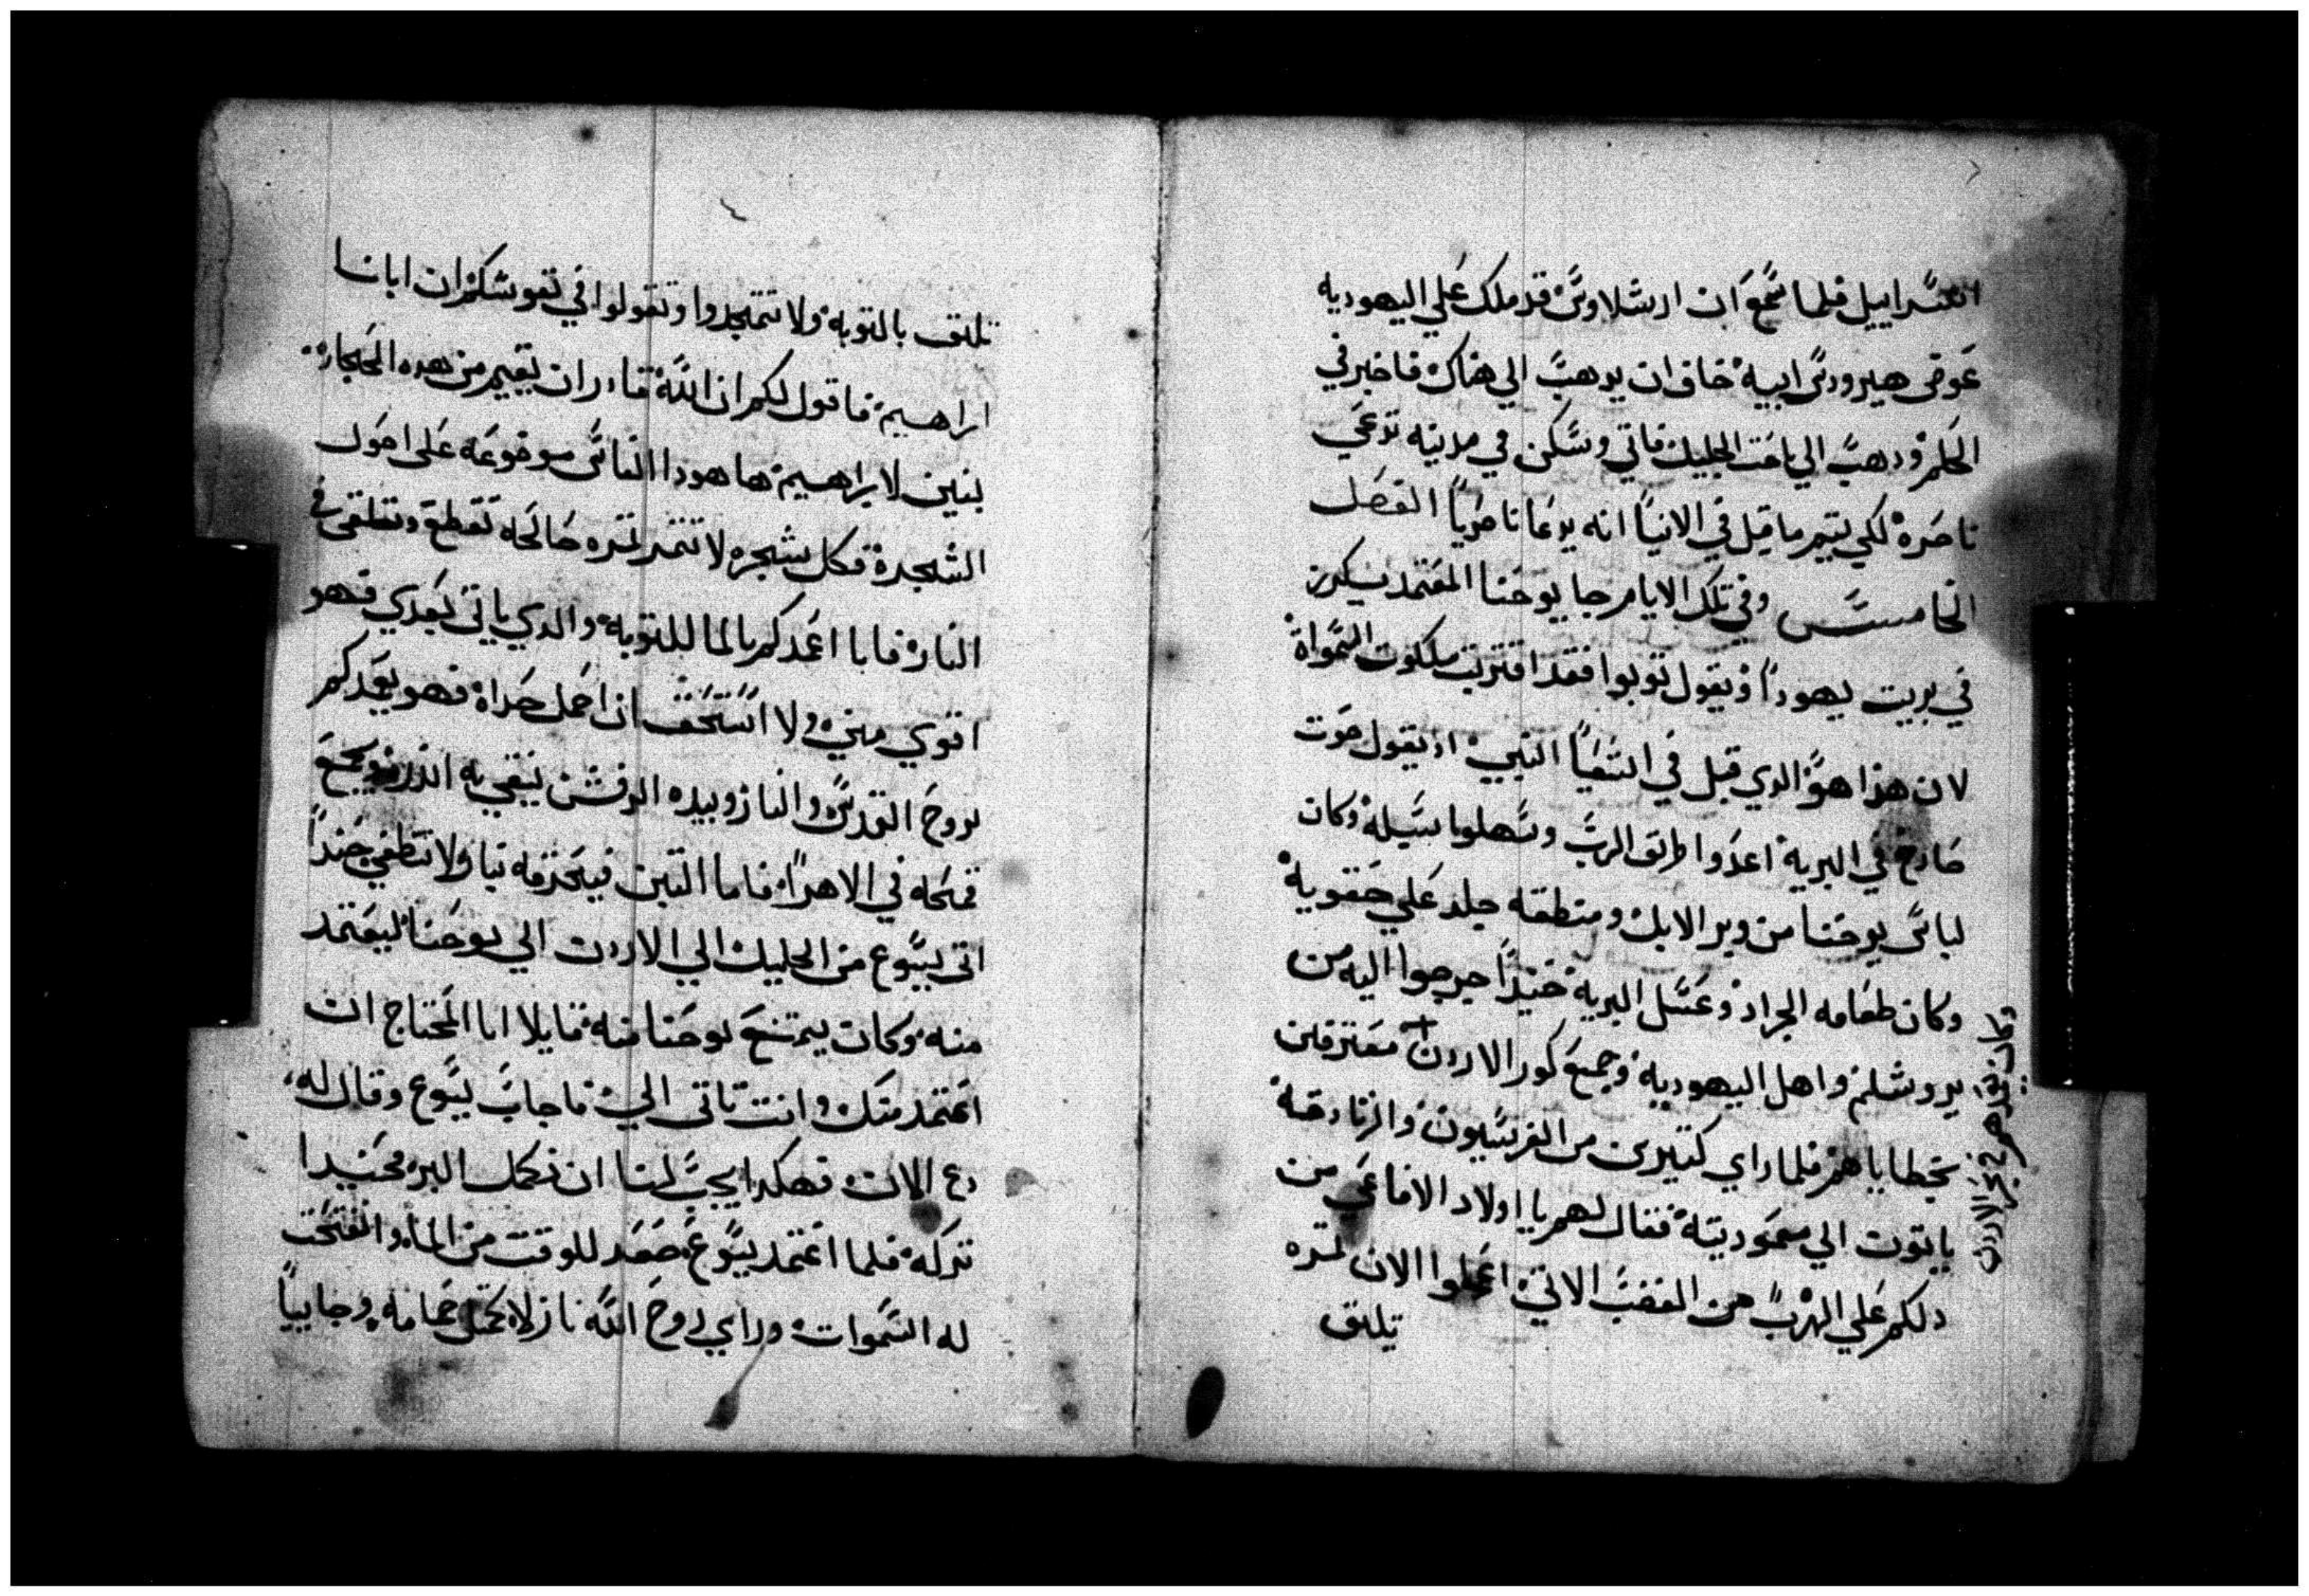 اسراييل فلما سمع ان ارشلاوس قد ملك علي اليهوديه
عوض هيرودس ابيه خاف ان يدهب الي هناك فاخبر في
الحلم ودهب الي ناحت الجليل فاتي وسكن في مدينه تدعي
ناصره لكي يتم ما قيل في الانبيا انه يدعا ناصريا الفصل
الخامس وفي تلك الايام جا يوحنا المعتمد يكرز
في بريت يهودا ويقول توبوا فقد اقتربت ملكوت السمواة
لان هذا هو الدي قيل في اشعيا النبي اد يقول صوت
صارخ في البرية اعدوا طريق الرب وسهلوا سبيله وكان
لباس يوحنا من وبر الابل ومنطقه جلد علي حقويه
وكان طعامه الجراد وعسل البرية حنيدا خرجوا اليه من
يروشلم واهل اليهودية وجميع كور الاردن معترفين
وكان يعمدهم في نهر الاردن
بخطاياهم فلما راي كتيرين من الفريسيون والزنادقة
ياتون الي معموديته فقال لهم يا اولاد الافاعي من
دلكم علي الهرب من الغضب الاتي اعملوا الان تمره
تليق
تليق بالتوبه ولا تتمجدوا وتقولوا في نفوسكم ان ابانا
ابراهيم فاقول لكم ان الله قادر ان يقيم من هده الحجاره
بنين لابراهيم ها هودا الفاس موضوعه على اصول
الشجرة فكل شجره لا تتمر تمره صالحه تقطع وتلقى في
النار فانا اعمدكم بالما للتوبه والدي ياتي بعدي فهو
اقوي مني ولا استحق ان احمل حداه فهو يعمدكم
بروح القدس والنار وبيده الرفش ينقي به اندره ويجمع
قمحه في الاهرا فاما التبن فيحرقه بنار لا تطفي حنيدا
اتى يسوع من الجليل الي الاردن الي يوحنا ليعتمد
منه وكان يمتنع يوحنا منه قايلا انا المحتاج ان
اعتمد منك وانت تاتى الي فاجاب يسوع وقال له
دع الان فهكدا يجب لنا ان نكمل البر فحنيدا
تركه فلما اعتمد يسوع صعد للوقت من الما وانفتحت
له السموات وراي روح الله نازلا كمتل حمامه وجاييا